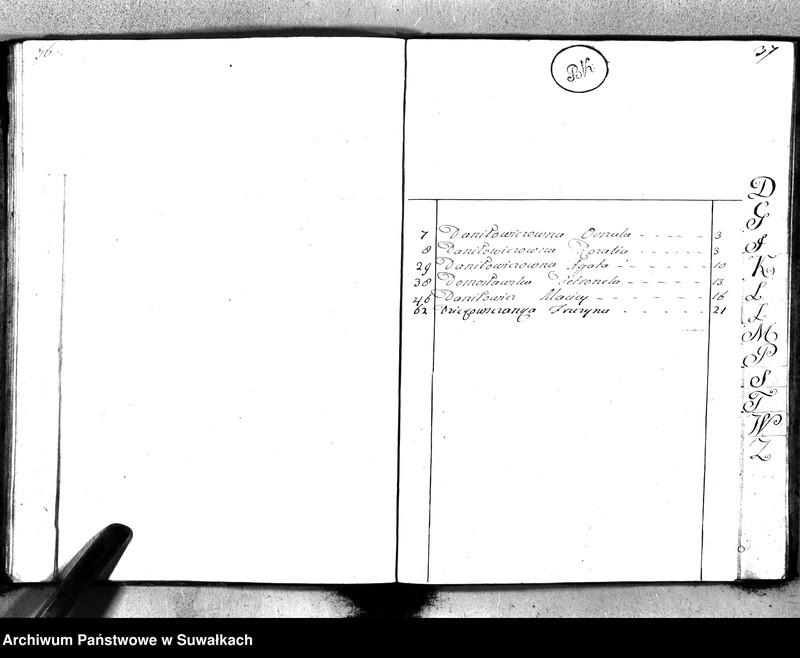 36.
37
BK
7 Daniłowiczowna Orszula - - - - - 3
8 Daniłowiczowna Rozalia - - - - - 3
29 Daniłowiczowna Agata - - - - - 10
38 Domosławska Petronela - - - - - 13
46 Daniłowicz Maciey - - - - - 16
62 Franzyna . . . . . 21
D
G
J
K
L
Ł
M
P
S
T
W
Z
Archiwum Państwowe w Suwałkach